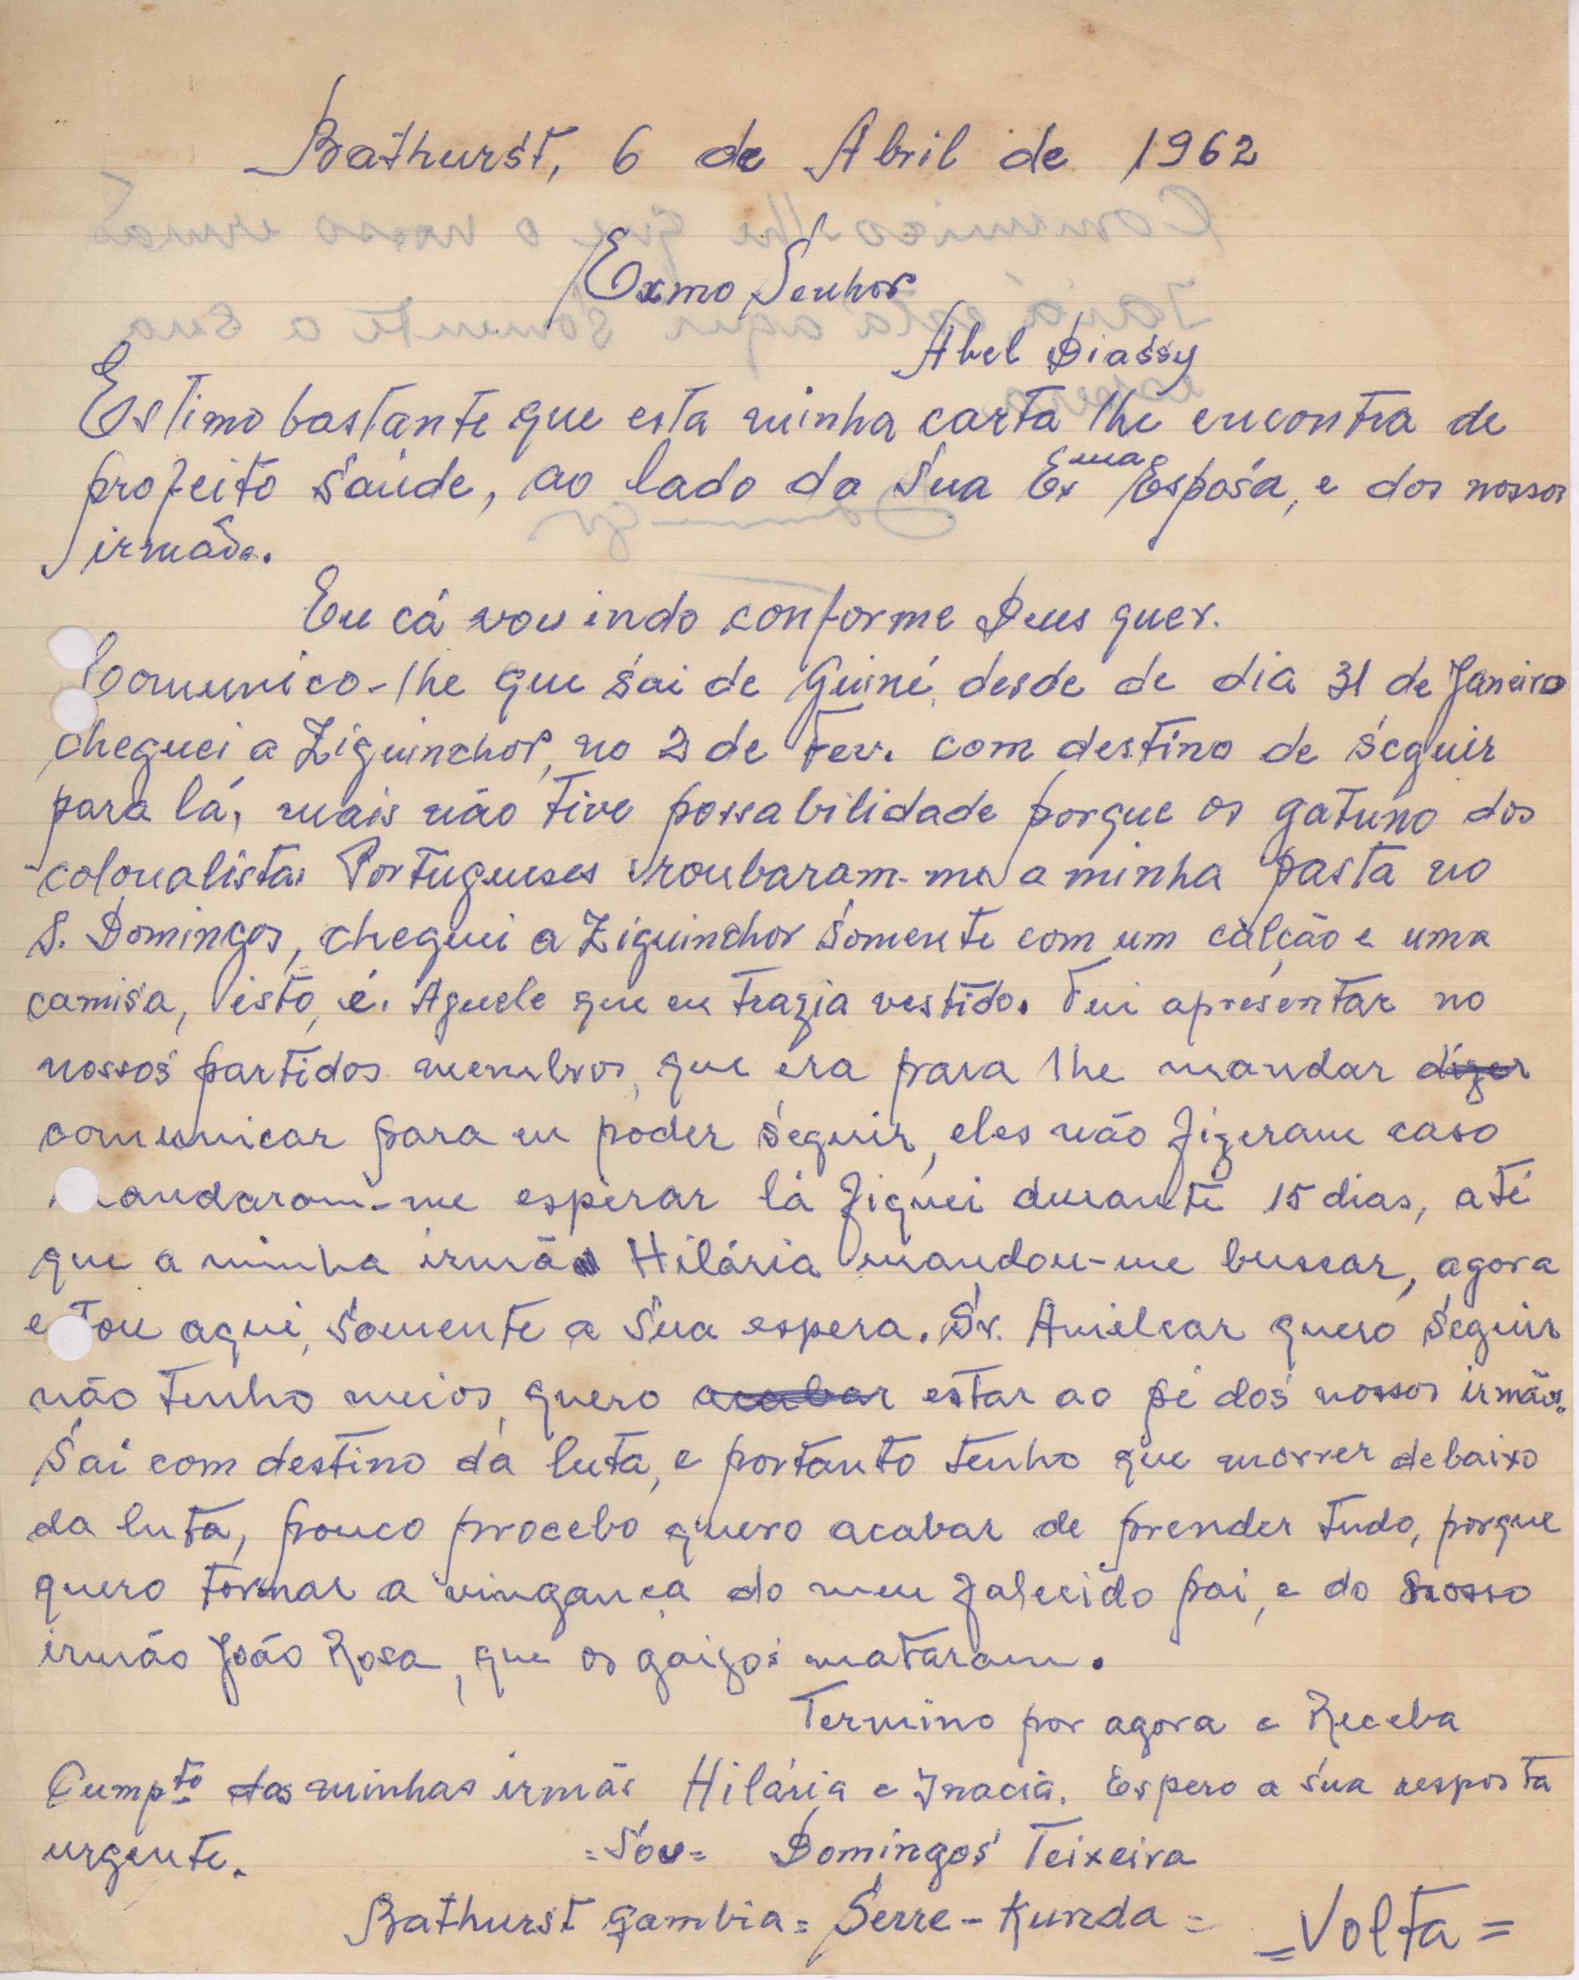 Bathurst, 6 de Abril de 1962
Exmo Senhor
Abel Diassy
Estimo bastante que esta minha carta lhe encontra de
profeito saúde, ao lado da sua Exma Esposa, e dos nossos
irmãos.
Eu cá vou indo conforme Deus quer.
Comunico-lhe que sai de Guiné, desde de dia 31 de Janeiro
cheguei a Ziguinchor, no 2 de Fev. com destino de seguir
para lá, mais não tive possabilidade porque os gatuno dos
colonalistas Portugueses roubaram-me a minha pasta no
S. Domingos, cheguei a Ziguinchor somente com um calção e uma
camisa, isto, é. Aquele que eu trazia vestido. Fui apresentar no
nossos partidos membros, que era para lhe mandar dizer
comunicar para eu poder seguir, eles não fizeram caso
mandaram-me esperar lá fiquei durante 15 dias, até
que a minha irmã Hilária mandou-me buscar, agora
estou aqui, somente a sua espera. Sr. Amilcar quero seguir
não tenho meios, quero acabar estar ao pé dos nossos irmãos.
Sai com destino da luta, e portanto tenho que morrer debaixo
da luta, pouco procebo quero acabar de prender tudo, porque
quero tormar a vingança do meu falecido pai, e do nosso
irmão João Rosa, que os gaizos mataram.
Termino por agora e Receba
Cumpto das minhas irmãs Hilária e Inacia. Espero a sua resposta
urgente.
=Sou= Domingos Teixeira
Bathurst Gambia = Serre-Kunda =
=Volta=